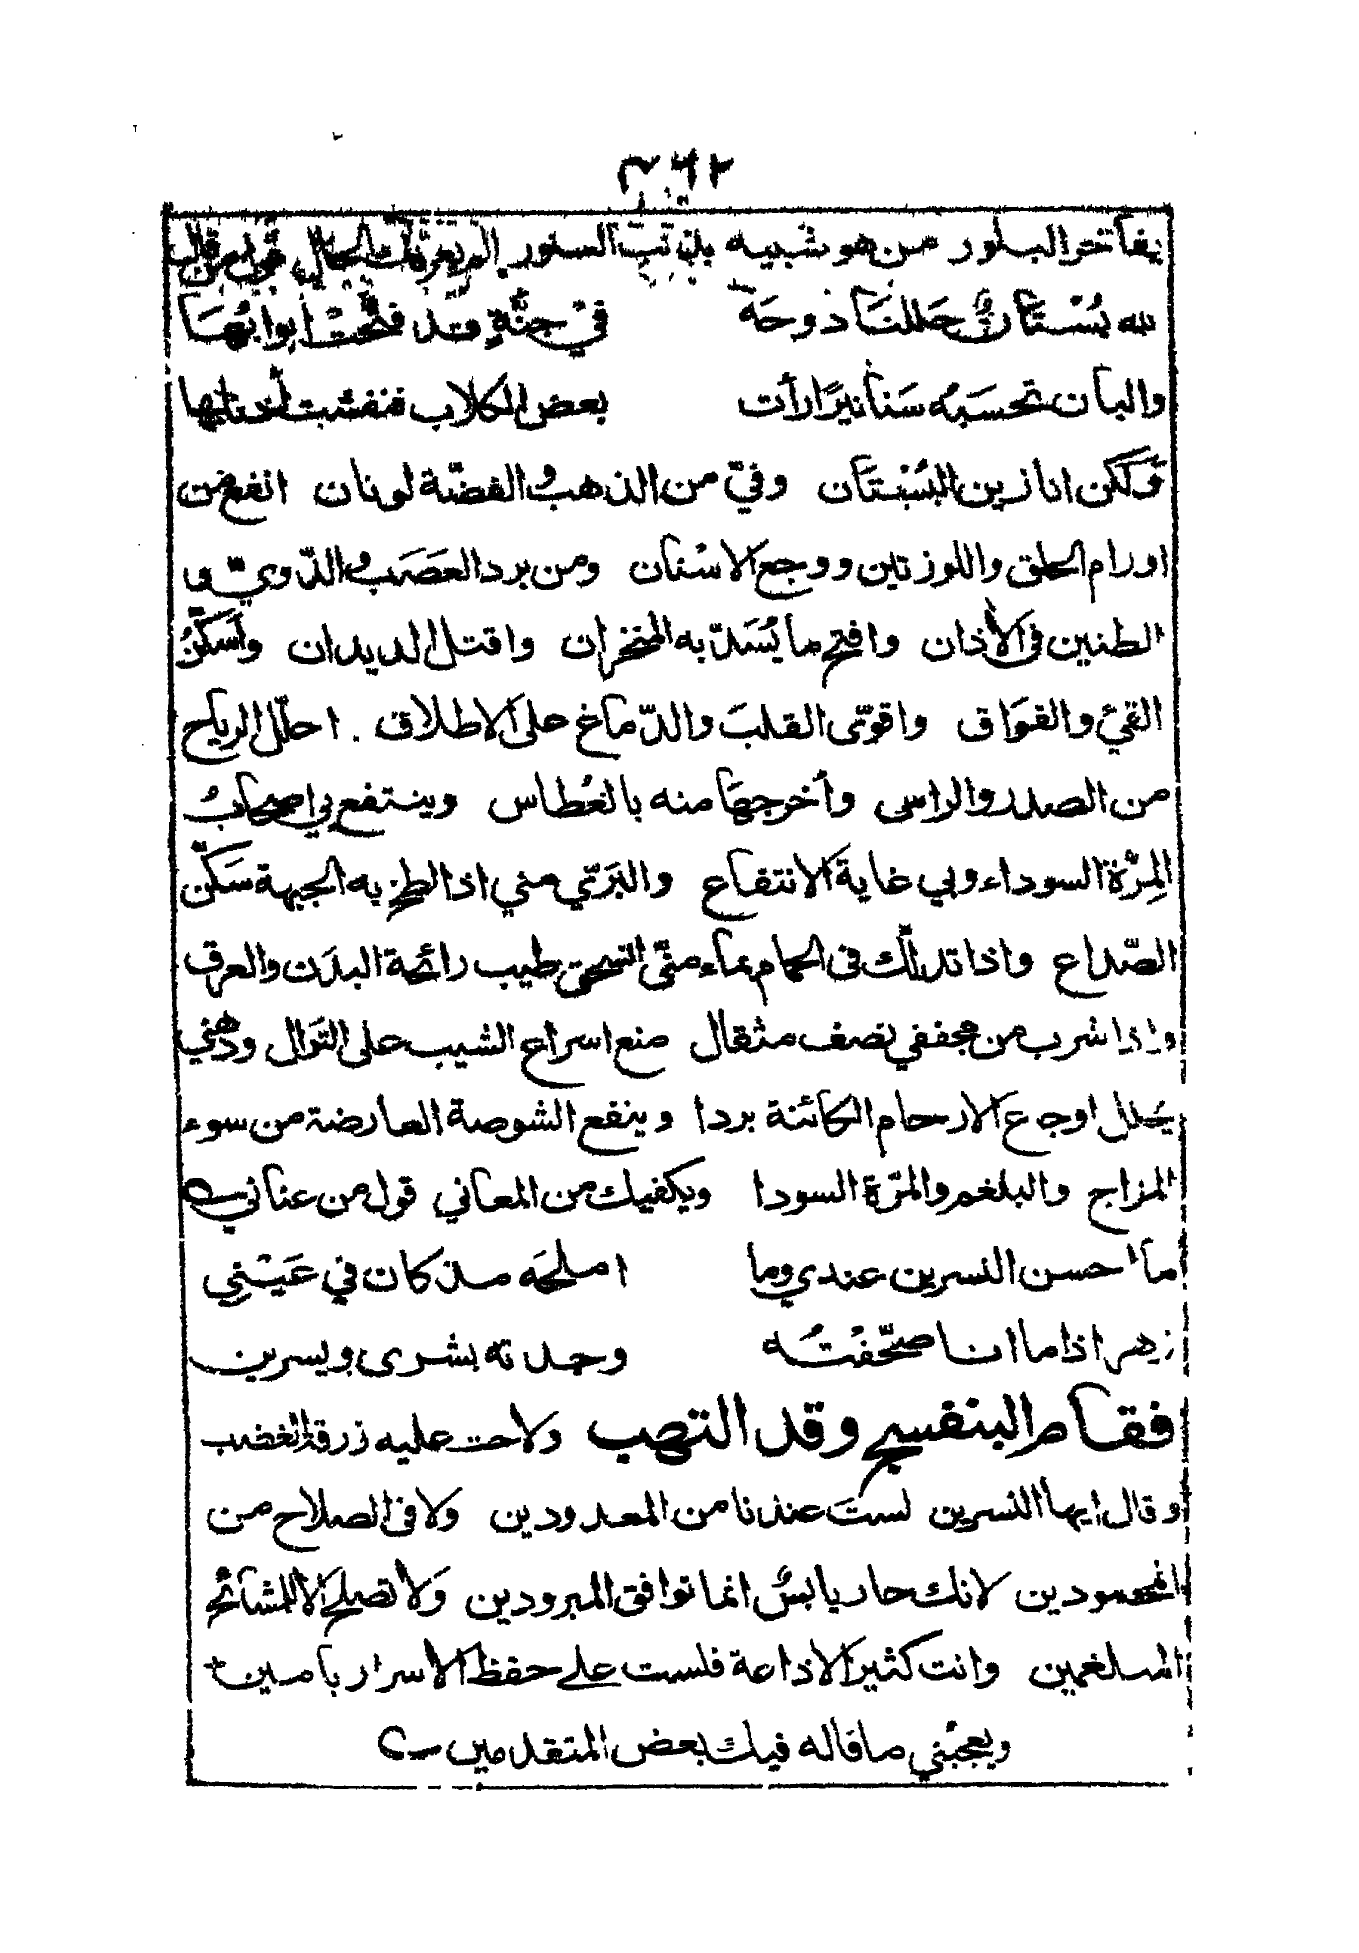 ٣٦٢
يفاخر البلور من هو شبيه بذنب السنور الم يعرفك الجمال قول من قال
لله بُسْتَان حَللنَا دوحَة في جنَّةٍ قد فتّحت ابوابُهَا
والبان تحسَبهُ سَنانيرًا رأت بعض الكلاب فنفشت أذنابها
ولكن انا زين البُسْتَان وفيّ من الذهب والفضّة لونان انفع من
اورام الحلق واللوزتين ووجع الاسْنان ومن برد العَصَب والدّويّ و
الطنين في الأذان وافتح ما يُسَدّ به المنخران واقتل الديدان وأسَكّنُ
القيئ والفوَاق واقوّى القلبَ والدّماغ على الاطلاق . احلّل الرياح
من الصدر والراس وأخرجهَا منه بالعُطاس وينتفع بي اصحابُ
المِرَّة السوداء وبي غاية الانتفاع والبَرّي مني اذا لطخ به الجبهة سَكّن
الصّداع واذا تدلّك في الحمام بماء منّي انسحق طيب رائحة البدَن والعرق
واذا شرب من مجففي نصف مثقال منع اسراع الشيب على التَوال ودُهني
يحَلل اوجاع الارحام الكائنة بردا وينفع الشوصة العارضة من سوء
المزاج والبلغم والمرّة السودا ويكفيك من المعاني قول من عناني
ما احسن النسرين عندي وما املحَه مذ كان في عَيْني
زهر اذا ما انا صحّفتُه وجدته بشرى ويسرين
فقام البنفسج وقد التهب ولاحت عليه زرقة الغضب
وقال ايها النسرين لستَ عندنا من المعدودين ولا في الصلاح من
المحمودين لانك حار يابسٌ انما توافق المبرودين ولا تصلح الا للمشائخ
المبلغمين وانت كثير الاذاعة فلست على حفظ الأسرار بامين
ويعجبُني ما قاله فيك بعض المتقدمين